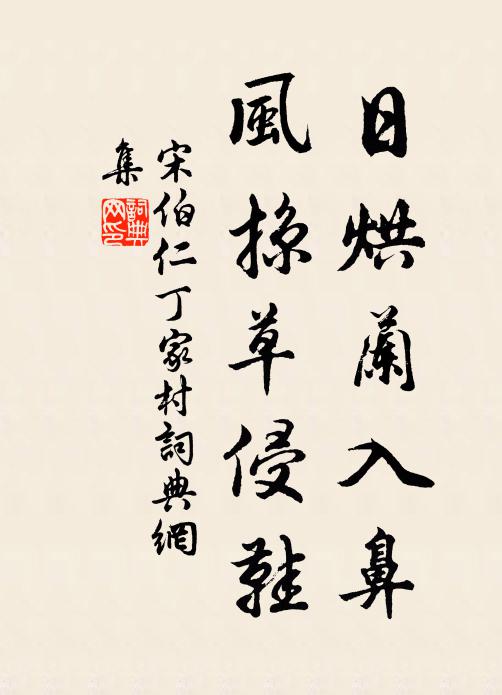 日烘蘭入鼻
風掠草侵鞋
宋伯仁丁家村詞典網
集
詞典網印